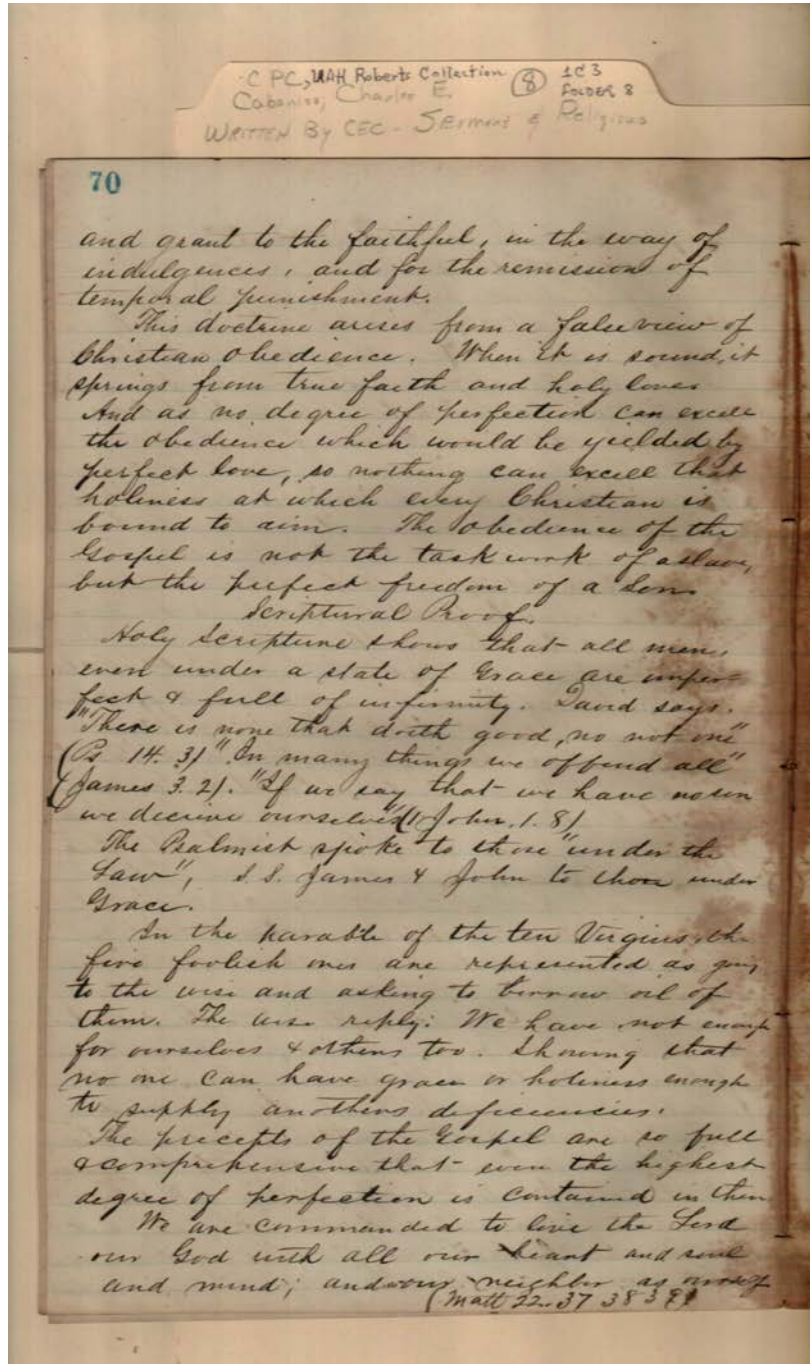 C P C, UAH Roberts Collection (8) 1C3
Cabaniss, Charles E. FOLDER 8
WRITTEN By CEC - Sermons & Religious
70
and grant to the faithful, in the way of
indulgences, and for the remission of
temporal punishment.
This doctrine arises from a false view of
Christian obedience. When it is sound, it
springs from true faith and holy love.
And as no degree of perfection can excell
the obedience which would be yielded by
perfect love, so nothing can excell that
holiness at which every Christian is
bound to aim. The obedience of the
Gospel is not the task work of a slave,
but the perfect freedom of a Son.
Scriptural Proof.
Holy Scripture shows that all men,
even under a state of Grace are imper-
fect & full of infirmity. David says.
"There is none that doith good, no not one"
(Ps 14. 3) "In many things we offend all"
(James 3. 2). "If we say that we have no sin
we deceive ourselves" (1 John. 1. 8)
The Psalmist spoke to those "under the
Law", S.S. James & John to those under
Grace.
In the parable of the ten Virgins, the
five foolish ones are represented as going
to the wise and asking to borrow oil of
them. The wise reply: We have not enough
for ourselves & others too. Showing that
no one can have grace or holiness enough
to supply anothers deficiencies.
The precepts of the Gospel are so full
& comprehensive that even the highest
degree of perfection is contained in them
We are commanded to love the Lord
our God with all our heart and soul
and mind; and our neighbor as ourself
(Matt 22. 37 38 39)